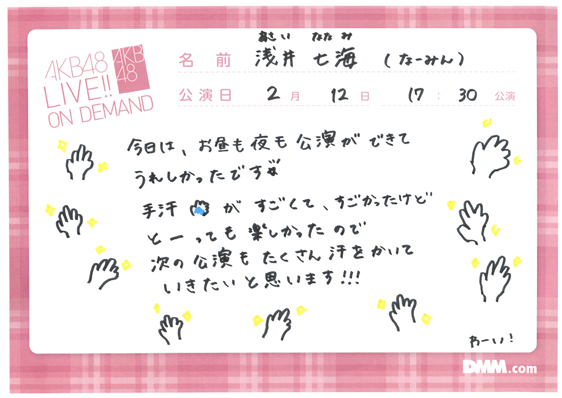 AKB48
LIVE!!
ON DEMAND
AKB
48
あさい ななみ
名前 浅井 七海 (なーみん)
公演日 2月 12日 17:30公演
今日は、お昼も夜も公演ができて
うれしかったです
手汗 が すごくて、すごかったけど
とーっても 楽しかったので
次の公演もたくさん汗をかいて
いきたいと思います!!!
わーい!
DMM.com